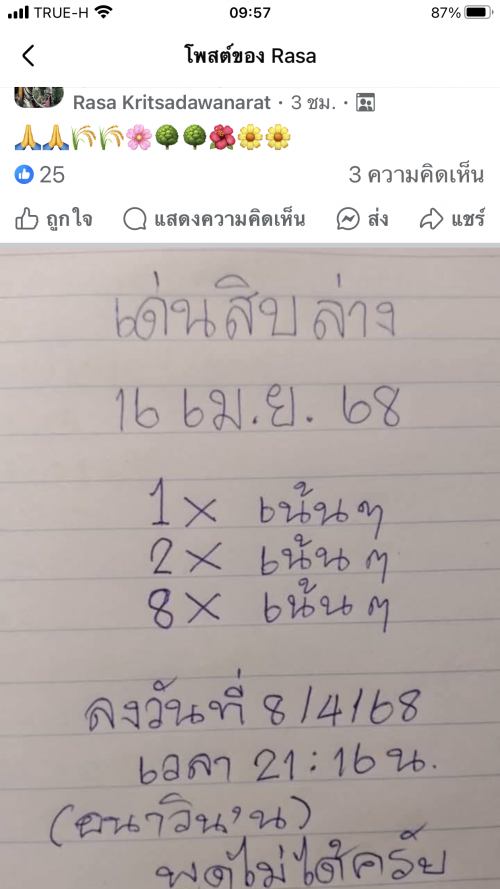 TRUE-H 09:57 87%
โพสต์ของ Rasa
Rasa Kritsadawanarat · 3 ชม. ·
🙏🙏🌾🌾🌸🌳🌳🌺🌼🌼
25 3 ความคิดเห็น
ถูกใจ แสดงความคิดเห็น ส่ง แชร์
เด่นสิบล่าง
16 เม.ย. 68
1x เน้นๆ
2x เน้นๆ
8x เน้นๆ
ลงวันที่ 8/4/68
เวลา 21:16 น.
พดไม่ได้ครับ